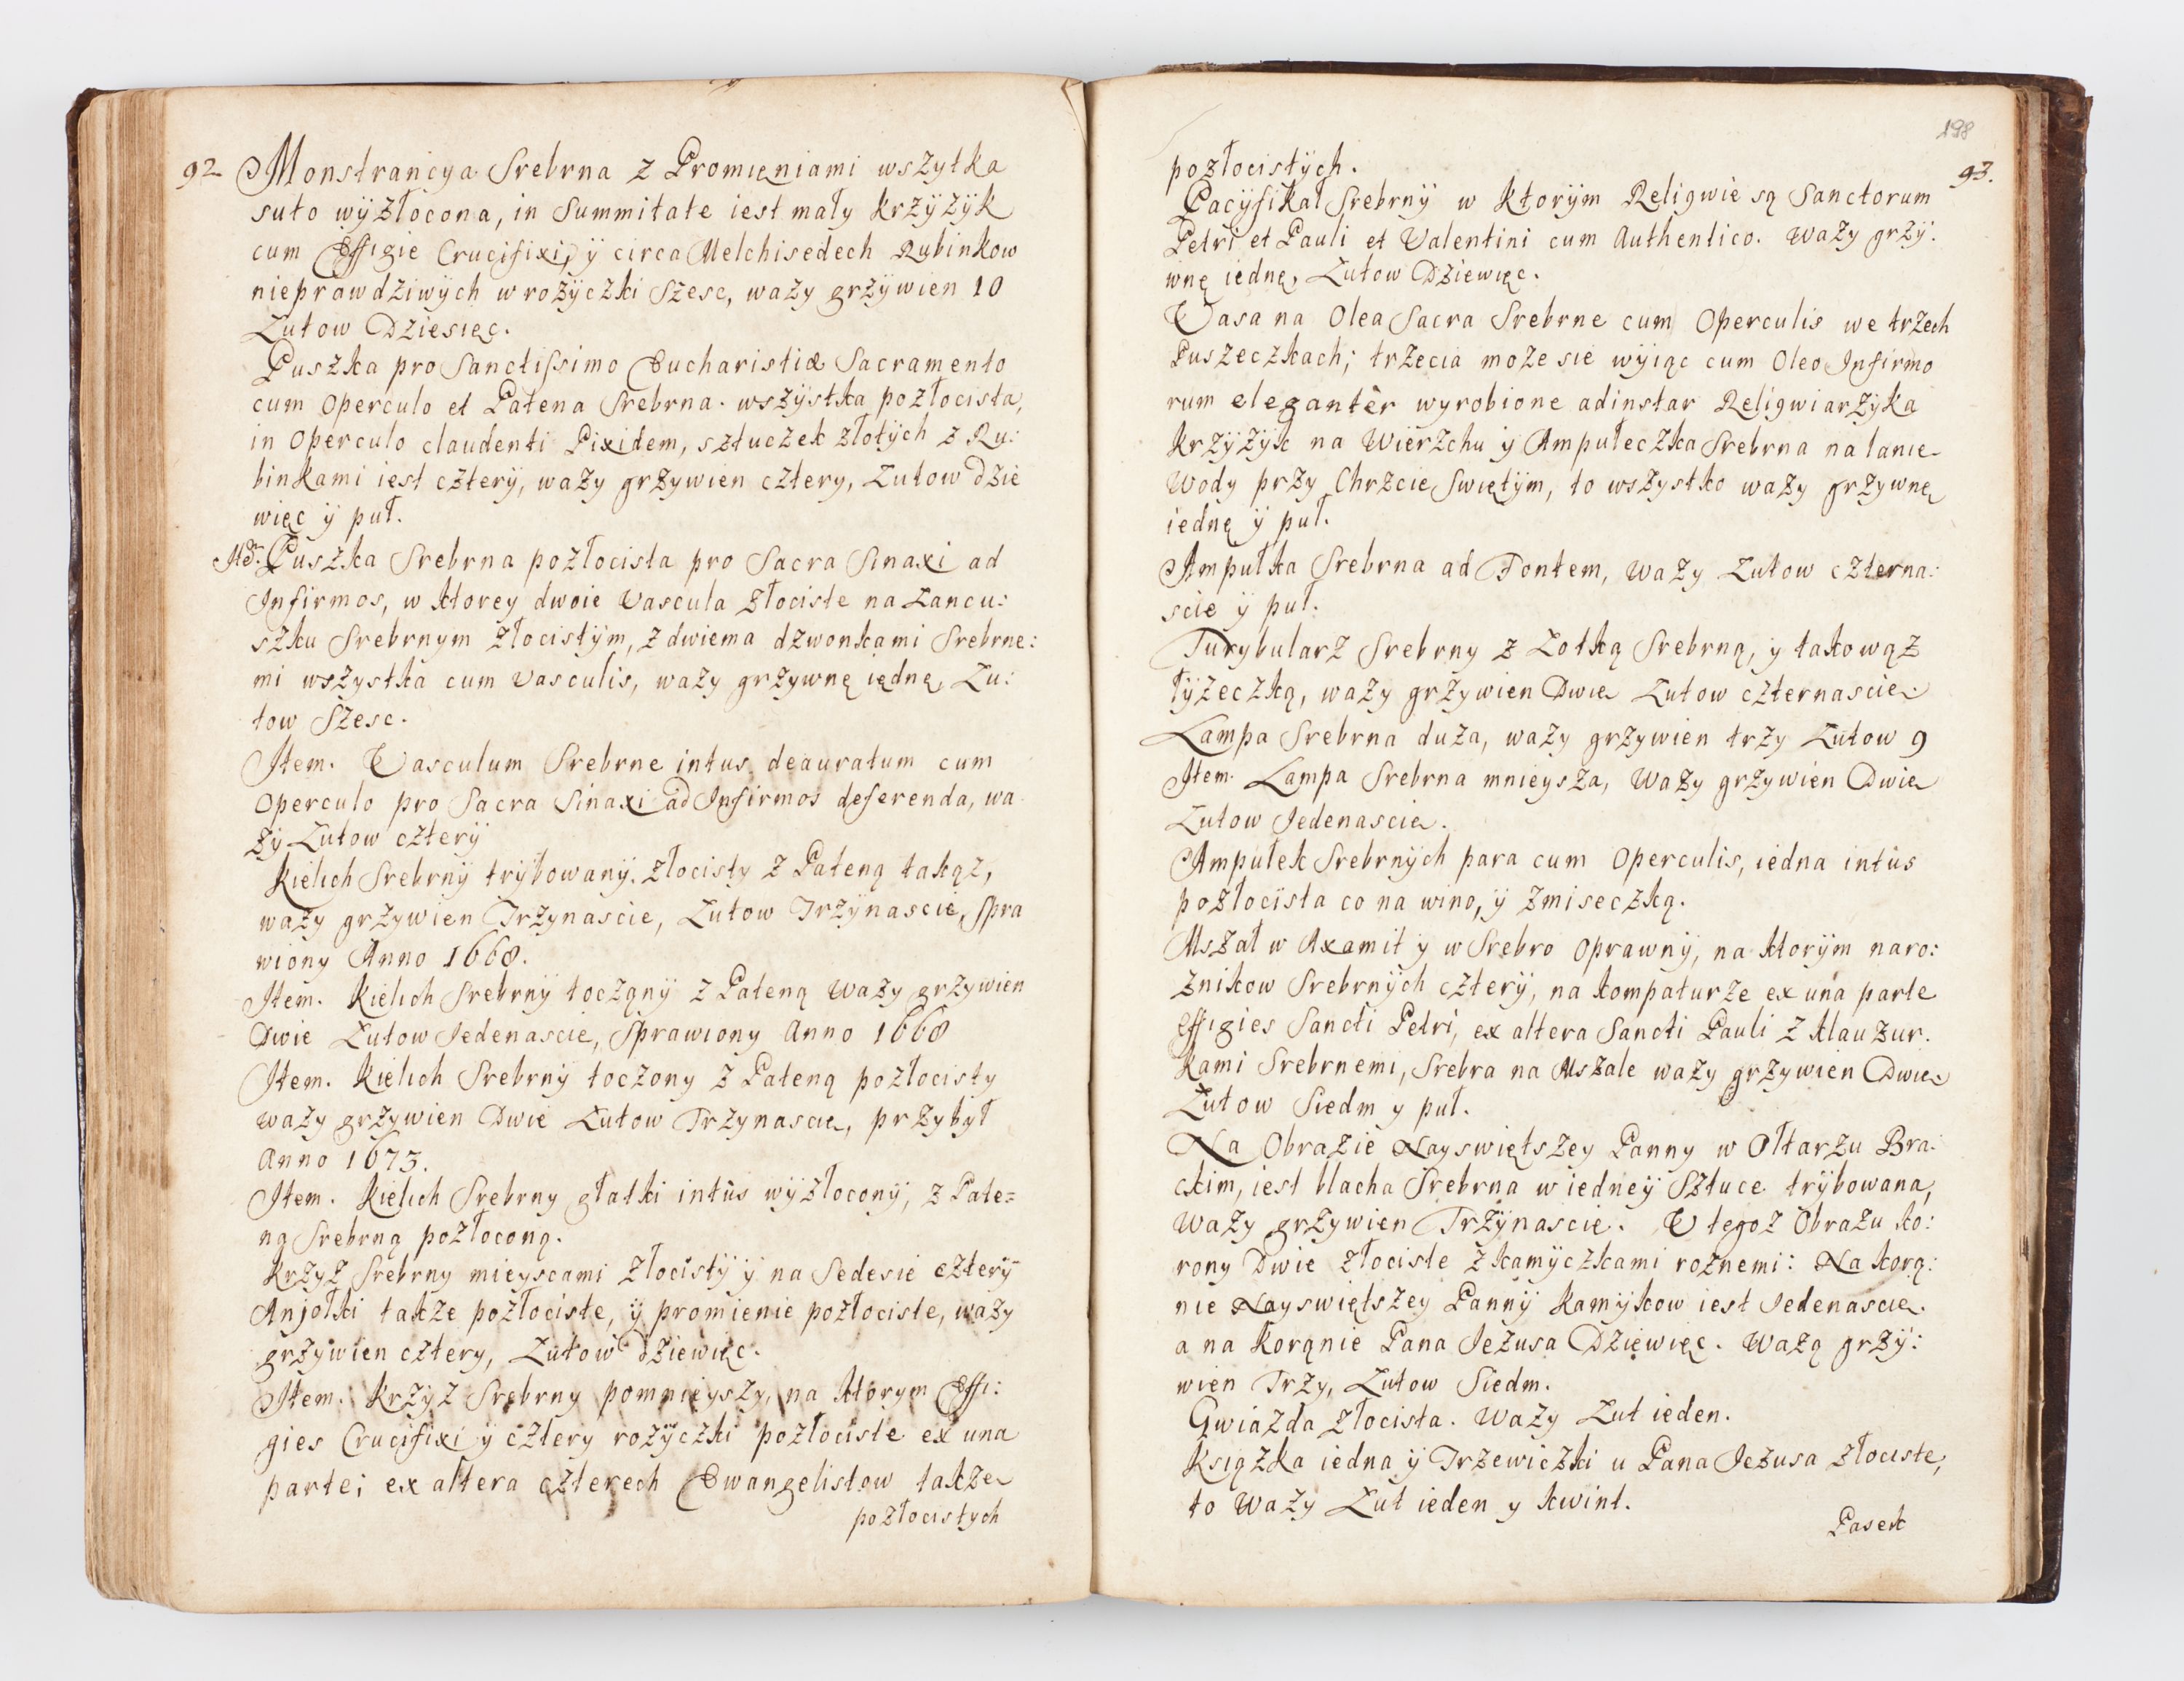 92 Monstrancya Srebrna z Promieniami wszytka
suto wÿzłocona, in Summitate iest mały krzÿzÿk
cum Effigie Crucifixi, ÿ circa Melchisedech Rubinkow
nieprawdziwÿch w rozÿczki szesc, wazy grzÿwien 10
Lutow Dziesięc.
Puszka pro Sanctissimo Eucharistiæ Sacramento
cum Operculo et Patena Srebrna. wszÿstka pozłocista,
in Operculo claudenti Pixidem, sztuczek złotÿch z Ru:
binkami iest czterÿ, wazy grzywien cztery, Lutow dzie
więc ÿ puł.
Puszka Srebrna pozłocista pro Sacra Sinaxi ad
Infirmos, w ktorey dwoie Vascula złociste na Lancu:
szku Srebrnym złocistÿm, z dwiema dzwonkami Srebrne:
mi wszystka cum Vasculis, wazy grzywnę iędnę, Lu:
tow Szesc.
Item. Vasculum Srebrne intus deauratum cum
Operculo pro Sacra Sinaxi ad Infirmos deferenda, wa
zy Lutow czterÿ
Kielich Srebrnÿ trÿbowanÿ. złocisty z Pateną takąz,
wazy grzywien Trzynascie, Lutow Trzÿnascie, Spra
wiony Anno 1668.
Item. Kielich Srebrnÿ tocząnÿ z Pateną wazy grzywien
Dwie Lutow Jedenascie, Sprawiony Anno 1668
Item. Kielich Srebrnÿ toczony z Pateną pozłocisty
wazy grzywien Dwie Lutow Trzynascie, przybył
Anno 1673.
Item. Kielich Srebrny głatki intùs wÿzłoconÿ, z Pate=
ną Srebrną pozłoconą.
Krzyz Srebrny mieyscami złocistÿ ÿ na Sedesie czterÿ
Anjołki takze pozłociste, ÿ promienie pozłociste, wazy
grzÿwien cztery, Lutow dziewięc.
Item. Krzyz Srebrny pomnieyszy, na ktorym Effi:
gies Crucifixi ÿ cztery rozÿczki pozłociste ex una
parte; ex altera czterech Ewangelistow takze
pozłocistych
198
93.
pozłocistÿch.
Pacÿfikał Srebrnÿ w ktorÿm Religwie są Sanctorum
Petri et Pauli et Valentini cum Authentico. wazy grzÿ:
wnę iednę, Lutow Dziewięc.
Vasa na Olea Sacra Srebrne cum Operculis we trzech
Puszeczkach; trzecia moze sie wÿiąc cum Oleo Infirmo
rum elegantèr wyrobione adinstar Religwiarzÿka
krzÿzÿk na Wierzchu ÿ Ampułeczka Srebrna na lanie
Wody przy Chrzcie Swiętÿm, to wszystko wazy grzywnę
iednę ÿ puł.
Ampułka Srebrna ad Fontem, wazy Lutow czterna:
scie ÿ puł.
Turybularz Srebrny z Lotką Srebrną, y takowąz
łÿzeczką, wazy grzÿwien Dwie Lutow czternascie.
Lampa Srebrna duza, wazy grzywien trzy Lutow 9
Item. Lampa Srebrna mnieysza, wazy grzywien Dwie
Lutow Jedenascie.
Ampułek Srebrnÿch para cum Operculis, iedna intùs
pozłocista co na wino, ÿ z miseczką.
Mszał w Axamit y w Srebro Oprawnÿ, na ktorÿm naro:
znikow Srebrnÿch czterÿ, na kompaturze ex una parte
effigies Sancti Petri, ex altera Sancti Pauli z klauzur.
kami Srebrnemi, Srebra na Mszale wazy grzywien Dwie
Lutow Siedm y puł.
Na Obrazie Nayswiętszey Panny w Ołtarzu Bra:
ckim, iest blacha Srebrna w iedneÿ Sztuce trÿbowana,
wazy grzywien Trzÿnascie. U tegoz Obrazu ko:
rony Dwie złociste z kamÿczkami roznemi: Na korą:
nie Nayswiętszey Pannÿ kamÿkow iest Jedenascie.
a na Korąnie Pana Jezusa Dziewięc. Wazą grzÿ:
wien Trzy, Lutow Siedm.
Gwiazda złocista. wazy Lut ieden.
Ksiązka iedna ÿ Trzewiczki u Pana Jezusa złociste,
to wazy Lut ieden y kwint.
Pasek